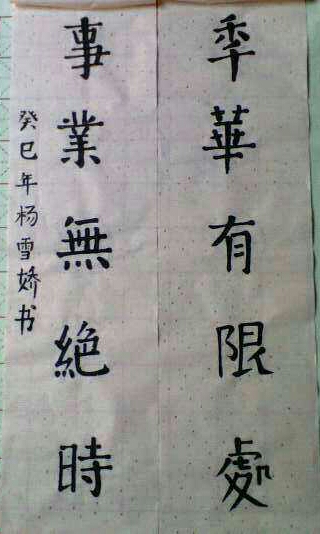 年華有限處
事業無絕時
癸巳年杨雪娇书